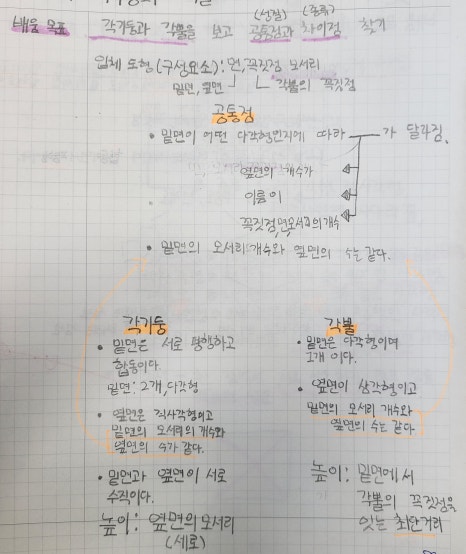 (성질) (종류)
배움 목표 각기둥과 각뿔을 보고 공통점과 차이점 찾기
입체 도형 (구성요소) : 면, 꼭짓점, 모서리
밑면, 옆면 각뿔의 꼭짓점
공통점
• 밑면이 어떤 다각형인지에 따라 ___가 달라짐.
옆면의 개수가
이름이
꼭짓점,면,모서리의 개수
• 밑면의 모서리 개수와 옆면의 수는 같다.
각기둥
• 밑면은 서로 평행하고
합동이다.
밑면 : 2개, 다각형
• 옆면은 직사각형이고
밑면의 모서리의 개수와
옆면의 수가 같다.
• 밑면과 옆면이 서로
수직이다.
높이 : 옆면의 모서리
(세로)
각뿔
• 밑면은 다각형이며
1개 이다.
• 옆면이 삼각형이고
밑면의 모서리 개수와
옆면의 수는 같다
높이 : 밑면에서
각뿔의 꼭짓점을
잇는 최단거리